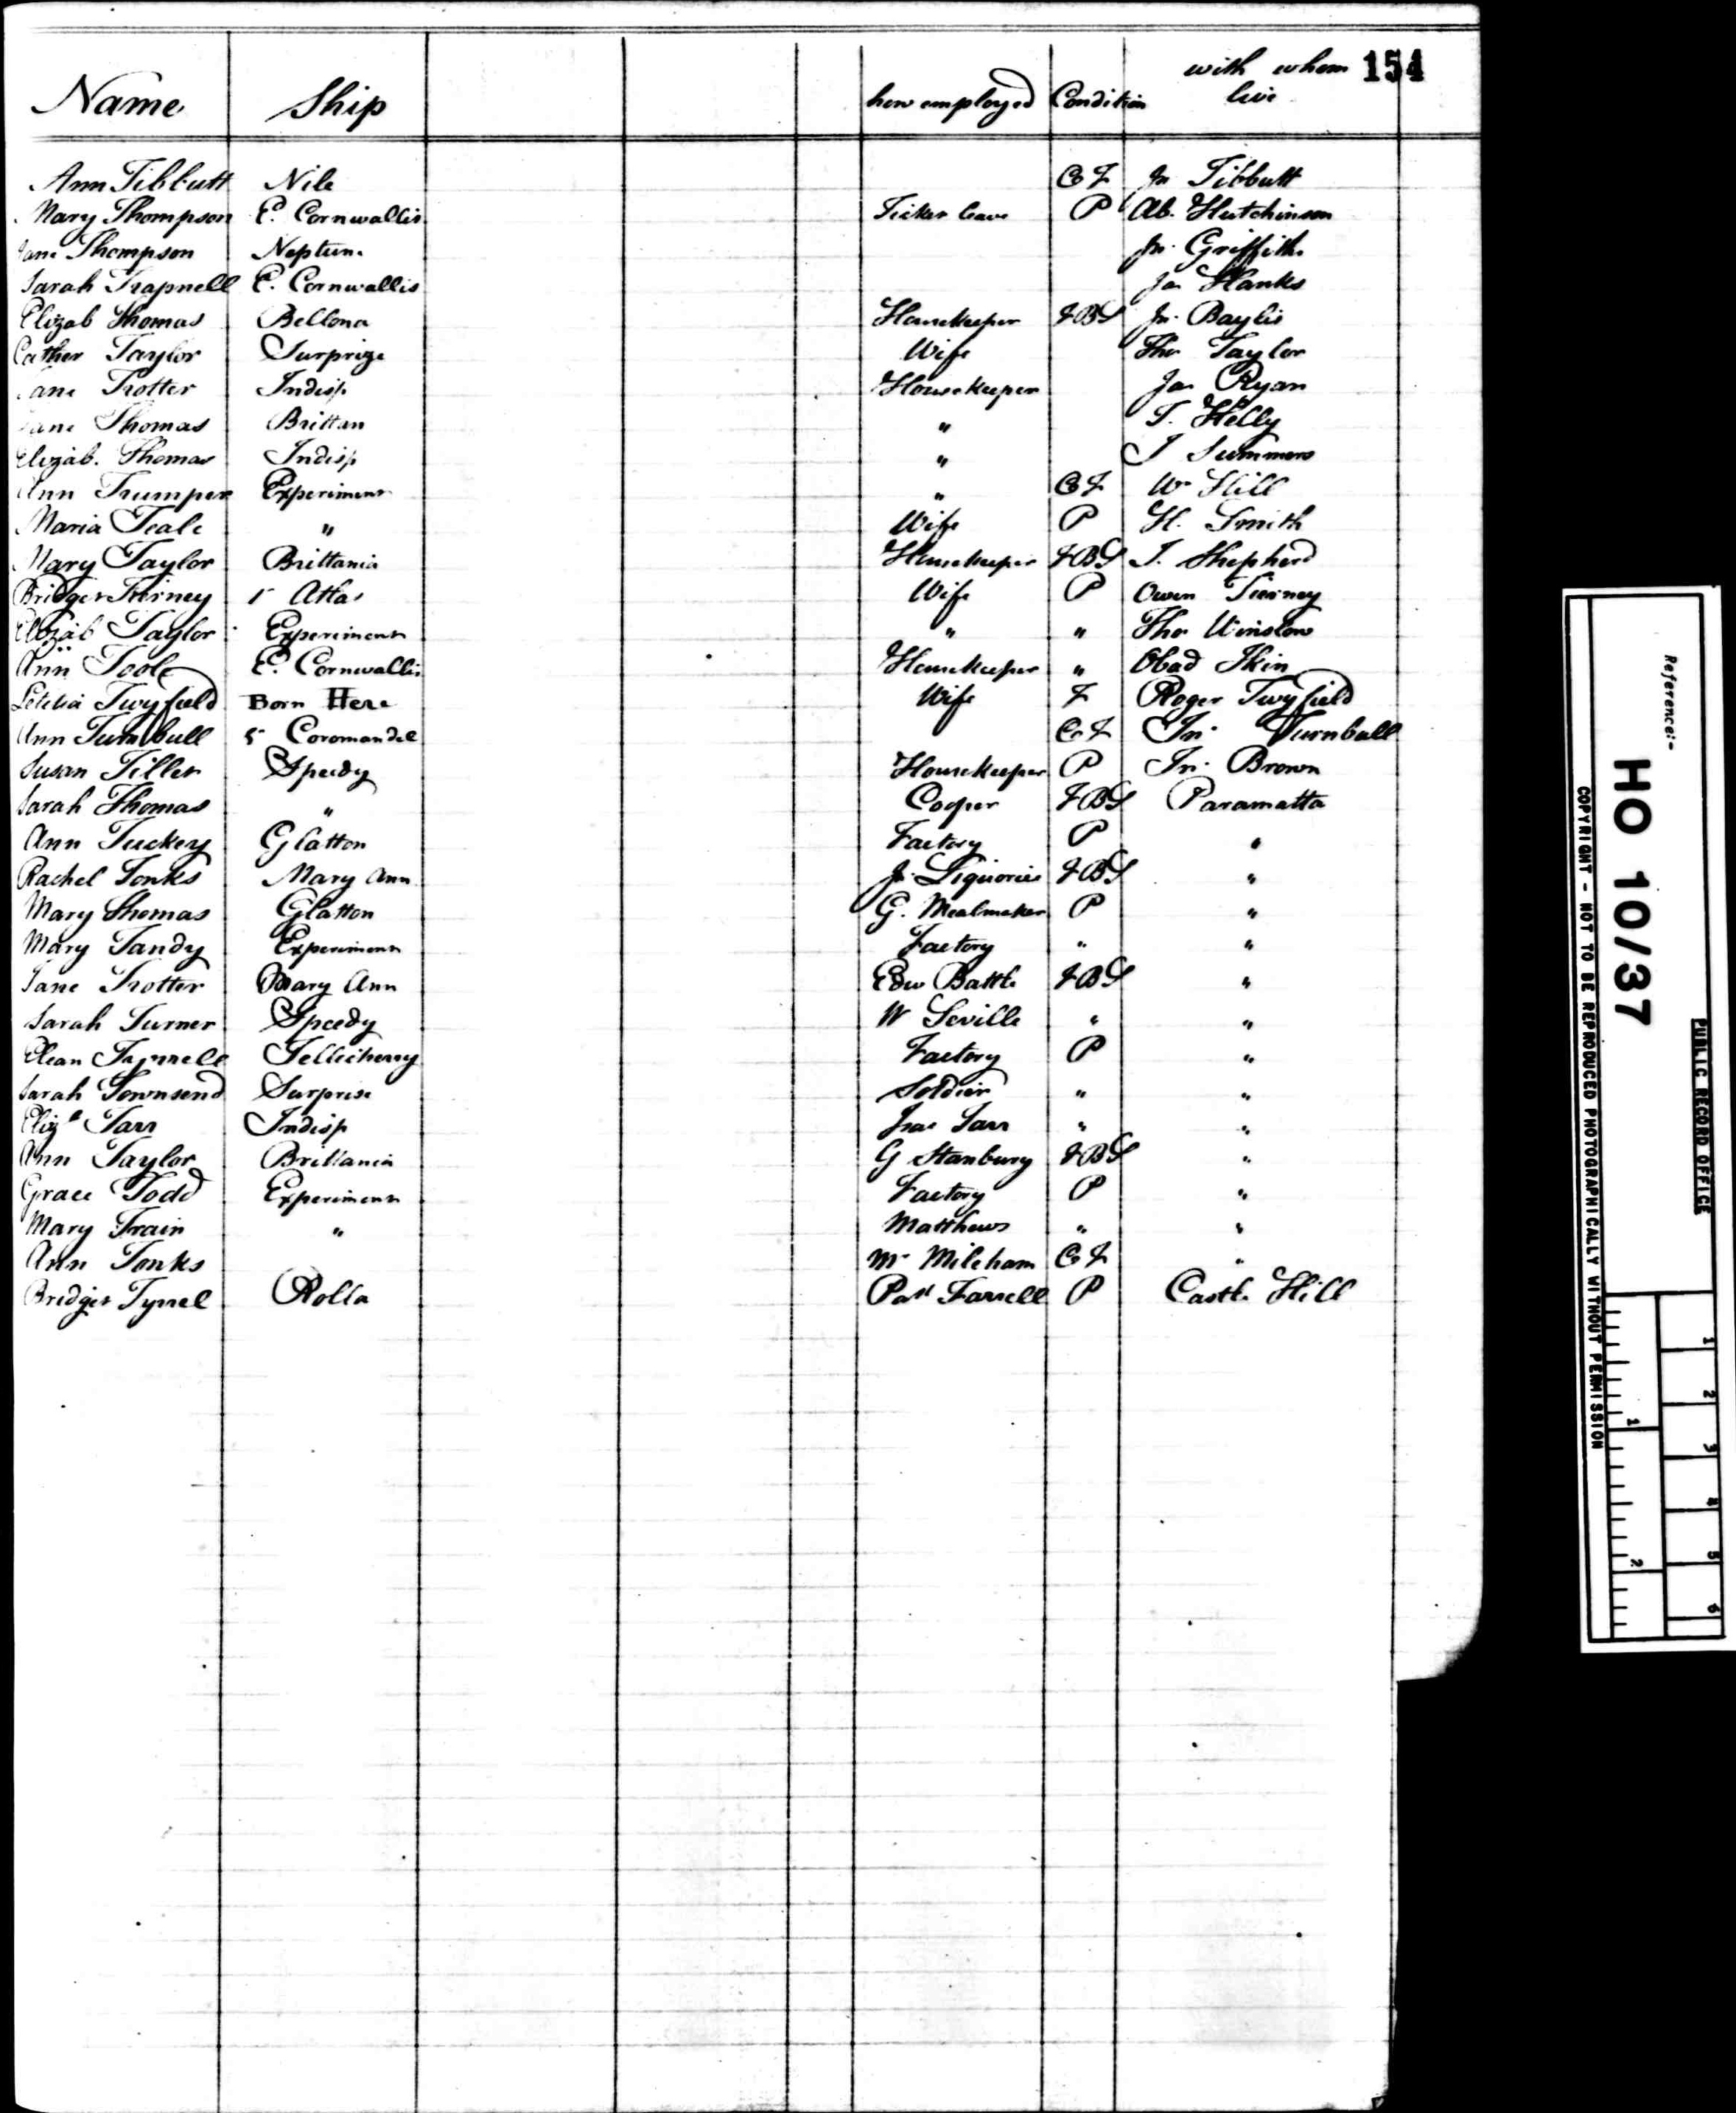 154
Name Ship how employed Condition with whom live
Ann Tibbutt Nile C F Jn Tibbutt
Mary Thompson E. Cornwallis Ticket leave P Ab. Hutchinson
Jane Thompson Neptune Jn. Griffiths
Sarah Trapnell E. Cornwallis Jas Hanks
Elizab Thomas Bellona Housekeeper FBS Jn. Baylis
Cather Taylor Surprize Wife Thos Taylor
Jane Trotter Indisp. Housekeeper Jas Ryan
Jane Thomas Brittan " T. Kelly
Elizab. Thomas Indisp " J Summers
Ann Trumper Experiment " C F Wm Hill
Maria Teale " Wife P H. Smith
Mary Taylor Brittania Housekeeper FBS J. Shepherd
Bridget Tierney 1 Atlas Wife P Owen Tierney
Elizab Taylor Experiment " " Thos Winslow
Ann Toole E. Cornwallis Housekeeper " Obad Ikin
Letitia Twyfield Born Here Wife F Roger Twyfield
Ann Turnbull Coromandel C F Jn. Turnbull
Susan Tiller Speedy Housekeeper P Jn. Brown
Sarah Thomas " Cooper FBS Paramatta
Ann Tuckey Glatton Factory P "
Rachel Tonks Mary Ann Jn. Liquorice FBS "
Mary Thomas Glatton G. Mealmaker P "
Mary Tandy Experiment Factory " "
Jane Trotter Mary Ann Edw Battle FBS "
Sarah Turner Speedy W Seville " "
Elean Tyrrell Tellicherry Factory P "
Sarah Townsend Surprise Soldier " "
Eliz'h Tarr Indisp Isac Tarr " "
Ann Taylor Brittania G Stanbury FBS "
Grace Todd Experiment Factory P "
Mary Train " Matthews " "
Ann Tonks Mr Mileham C F "
Bridget Tyrrel Rolla Pat Farrell P Castle Hill
PUBLIC RECORD OFFICE
Reference:-
HO 10/37
COPYRIGHT - NOT TO BE REPRODUCED PHOTOGRAPHICALLY WITHOUT PERMISSION
1 2 3 4 5 6
1 2